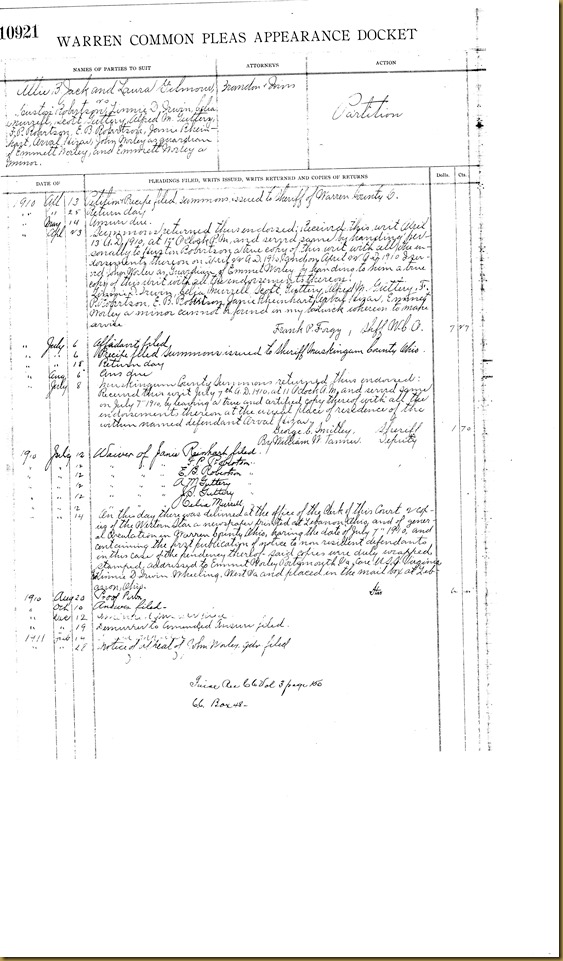 10921
WARREN COMMON PLEAS APPEARANCE DOCKET
NAMES OF PARTIES TO SUIT
ATTORNEYS
ACTION
Allie F Jack and Laura Gilmour,
vs
Justice Robertson, Timmie D. Irwin, Celia
Murrell, Scott Guttery, Alfred M. Guttery,
F. P. Robertson, E. B. Robertson, Janie Rhein-
hart, Arval Pizar, John Worley as guardian
of Emmett Worley, and Emmett Worley a
minor.
Brandon & Ivins
Partition
DATE OF
PLEADINGS FILED, WRITS ISSUED, WRITS RETURNED AND COPIES OF RETURNS
Dolls.
Cts.
1910 Apl 13 Petition & Precipe filed Summons issued to Sheriff of Warren County O.
" " 25 Return day
" May 14 Answer due.
" Apl 23 Summons returned thus endorsed; Received this writ April
13 A.D. 1910, at 15 O'Clock P.M. and served same by handing per-
sonally to Justin Robertson a true copy of this writ with all the en-
dorsements thereon on April A.D. 1910, and on April A.D. 1910 I ser-
ved John Worley as Guardian of Emmet Worley by handing to him a true
copy of this writ with all the endorsements thereon.
Timmie D. Irwin, Celia Murrell, Scott Guttery, Alfred M. Guttery, F.
P. Robertson, E. B. Robertson, Janie Rheinhart, Arval Pizar, Emmet
Worley a minor cannot be found in my bailiwick whereon to make
service
Frank P. Forgy, Shff W.C.O. 7
" July 6 Affidavit filed
" " 6 Precipe filed Summons issued to Sheriff Muskingum County Ohio.
" " 18 Return day
" Aug 6 Ans due
" July 8 Muskingum County Summons returned thus endorsed:
Received this writ July 7th A.D. 1910, at 11 O'clock A.M., and served same
on July 7" 1910, by leaving a true and certified copy thereof with all the
endorsements thereon at the usual place of residence of the
within named defendant Arval Pizar
George C. Smitley, Sheriff 1 70
By William W. Tanner Deputy
1910 July 12 Waiver of Janie Reinhart filed.
" " 12 " " F. P. Robertson "
" " 12 " " E. B. Robertson "
" " 12 " " A. M. Guttery "
" " 12 " " J. S. Guttery "
" " 2 " " Celia Murrell "
" " 14 On this day there was delivered at the office of the Clerk of this Court, 2 cop-
ies of the Western Star a newspaper printed at Lebanon, Ohio, and of gener-
al Circulation in Warren County Ohio, bearing the date of July 7" 1910, and
containing the first publication of notice to non resident defendants
in this case of the pendency thereof said copies were duly wrapped
stamped, addressed to Emmet Worley Portsmouth Va, Care U.S.S. Virginia
Timmie D. Irwin Wheeling, West Va and placed in the mail box at Leb-
anon, Ohio.
1910 Aug 20 Proof Pub.
" Oct 10 Answer filed -
" Dec 12
" " 19 Demurrer to Amended Answer filed.
1911 14
" " 28 Notice of Appeal of John Worley, gdn filed
Page 155
CC Box 48 -